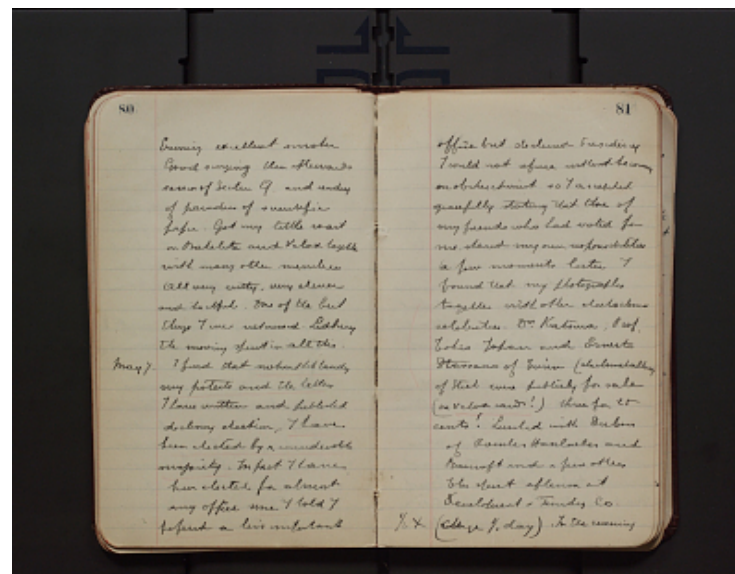 80
Evening excellent smoker
Good singing then afterwards
session of Section Q and reading
of parodies of scientific
paper. Got my little roast
on Bakelite and Velox together
with many other members
All very witty, very clever
and tactful. One of the best
things I ever witnessed. Lidbury
the moving spirit in all this.
May 7. I find that notwithstanding
my protests and the letter
I have written and published
declining election, I have
been elected by a considerable
majority. In fact I have
been elected for almost
any office since I told I
preferred a less important
81
office but declined Presidency
I could not refuse without becoming
an obstructionist so I accepted
gracefully stating that those of
my friends who had voted for
me shared my own responsibilities
a few moments later I
found that my photographs
together with other electrochem
celebrities. Dr. Katsura, Prof.
Tokio Japan and Ernesto
Stassano of Turin (electrometallurgy
of steel were publicly for sale
(on Velox cards!) three for 25
cents! Lunched with
of Hooker and
Bancroft and a few others
Then spent afternoon at
Development & Funding Co.
(charge ½ day). In the evening